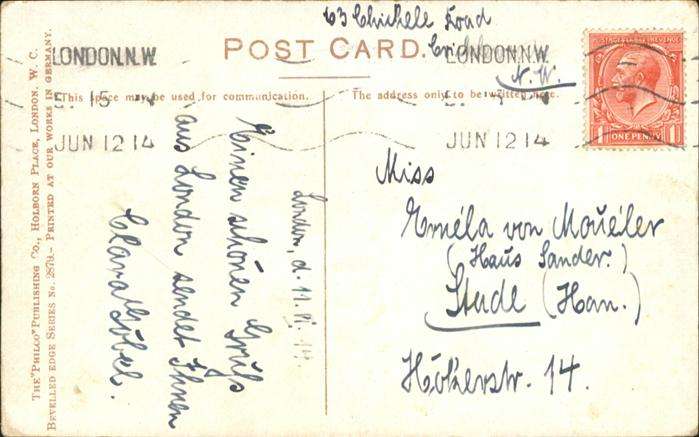 63 Chichele Road
Cricklewood
N.W.
POST CARD.
LONDON.N.W
5. 15
JUN 12 14
LONDON.N.W
JUN 12 14
POSTAGE REVENUE
ONE PENNY
This space may be used for communication.
The address only to be written here.
THE "PHILCO" PUBLISHING CO., HOLBORN PLACE, LONDON, W. C.
BEVELLED EDGE SERIES No. 2879.- PRINTED AT OUR WORKS IN GERMANY.
London, d. 11. VI. 14.
Einen schönen Gruß
aus London sendet Ihnen
Clara Göbel.
Miss
von
(Haus Sander.)
Stade (Han.)
Hökerstr. 14.